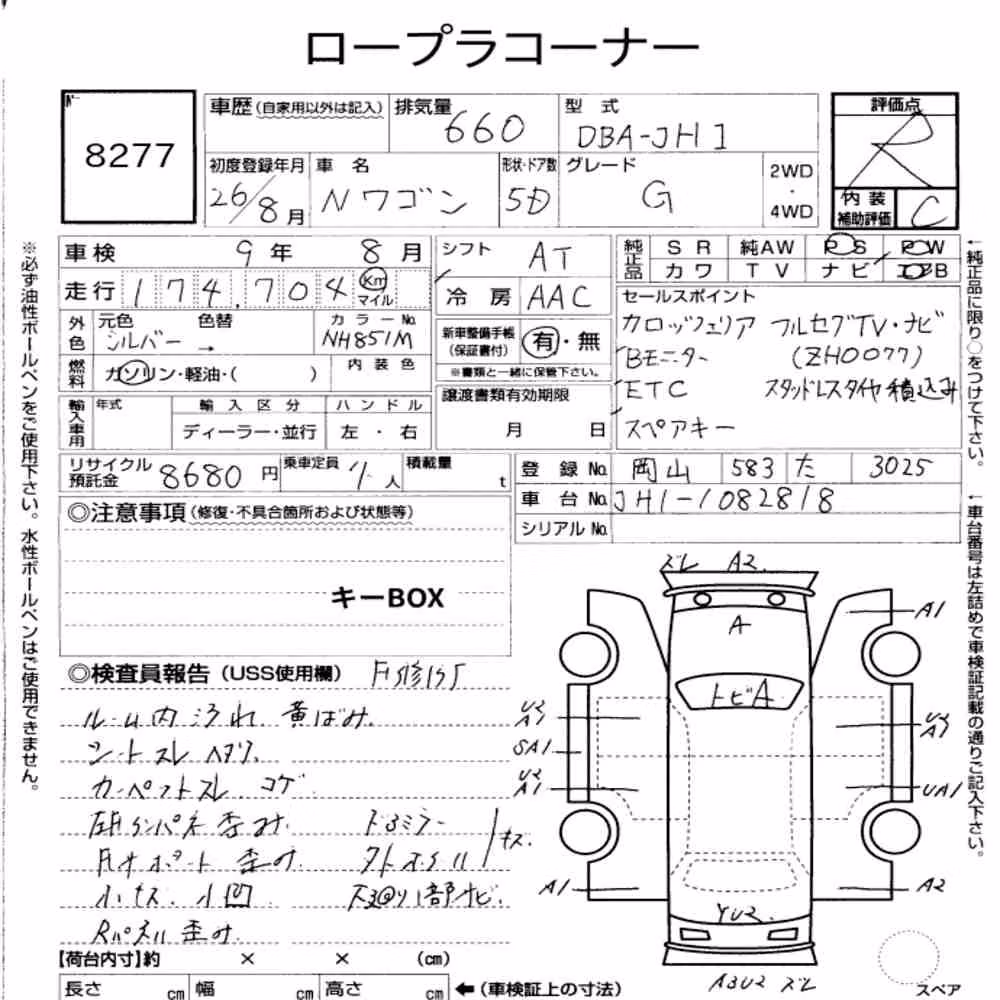 ロープラコーナー
No.
8277
車歴 (自家用以外は記入)
排気量 660
型式 DBA-JH1
評価点 R
初度登録年月 26/8月
車名 Nワゴン
形状・ドア数 5D
グレード G
2WD・4WD
内装補助評価 C
車検 9年 8月
走行 174,704 Km マイル
外色 元色 シルバー → 色替
カラーNo. NH851M
燃料 ガソリン・軽油・( )
内装色
輸入車用 年式
輸入区分 ディーラー・並行
ハンドル 左・右
シフト AT
冷房 AAC
新車整備手帳(保証書付) 有・無
※書類と一緒に保管下さい。
譲渡書類有効期限
月 日
純正品 SR 純AW PS PW
カワ TV ナビ エアB
セールスポイント
カロッツェリア フルセグTV・ナビ
Bモニター (ZH0077)
ETC スタッドレスタイヤ積込み
スペアキー
※必ず油性ボールペンをご使用下さい。水性ボールペンはご使用できません。
←純正品に限り○をつけて下さい。
←車台番号は左詰めで車検証記載の通りご記入下さい。
リサイクル預託金 8680円
乗車定員 人
積載量 t
登録No. 岡山 583 た 3025
車台No. JH1-1082818
シリアルNo.
◎注意事項(修復・不具合箇所および状態等)
キーBOX
◎検査員報告(USS使用欄)
ルーム内汚れ 黄ばみ.
シートスレ ヘタリ.
カーペットスレ コゲ
歪み. ドアミラー
Fサポート 歪み. アルミホイール キズ.
小キズ. 小凹
Rパネル 歪み.
ズレ A2.
A
トビA
A1
U2
A1
SA1
U2
A1
A1
UA1
A2
YU2.
A3U2 ズレ
スペア
【荷台内寸】約 × × (cm)
長さ cm 幅 cm 高さ cm ←(車検証上の寸法)